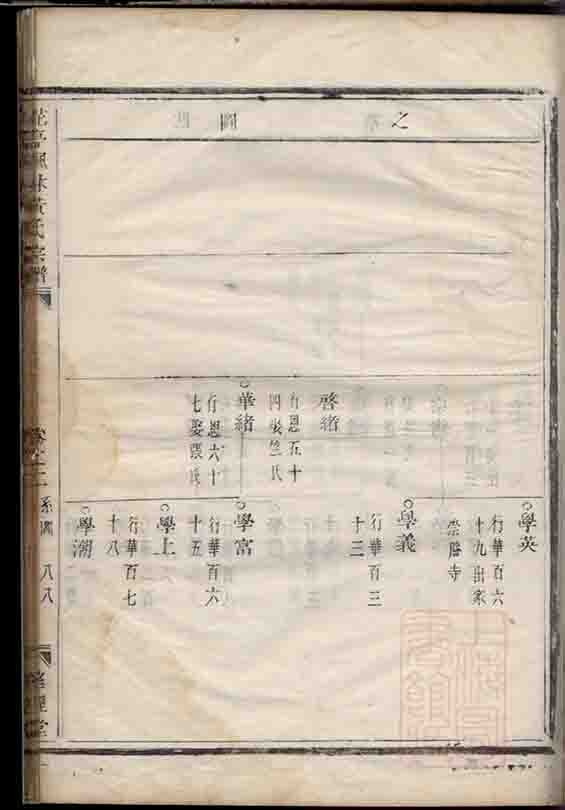 之
圖
啓緒
行恩五十
四娶竺氏
華緒
行恩六十
七娶張氏
學英
行華百六
十九出家
崇勝寺
學義
行華百三
十三
學富
行華百六
十五
學上
行華百六
學潮
行華百七
十八
黃氏宗譜
系圖 八八
堂
上海